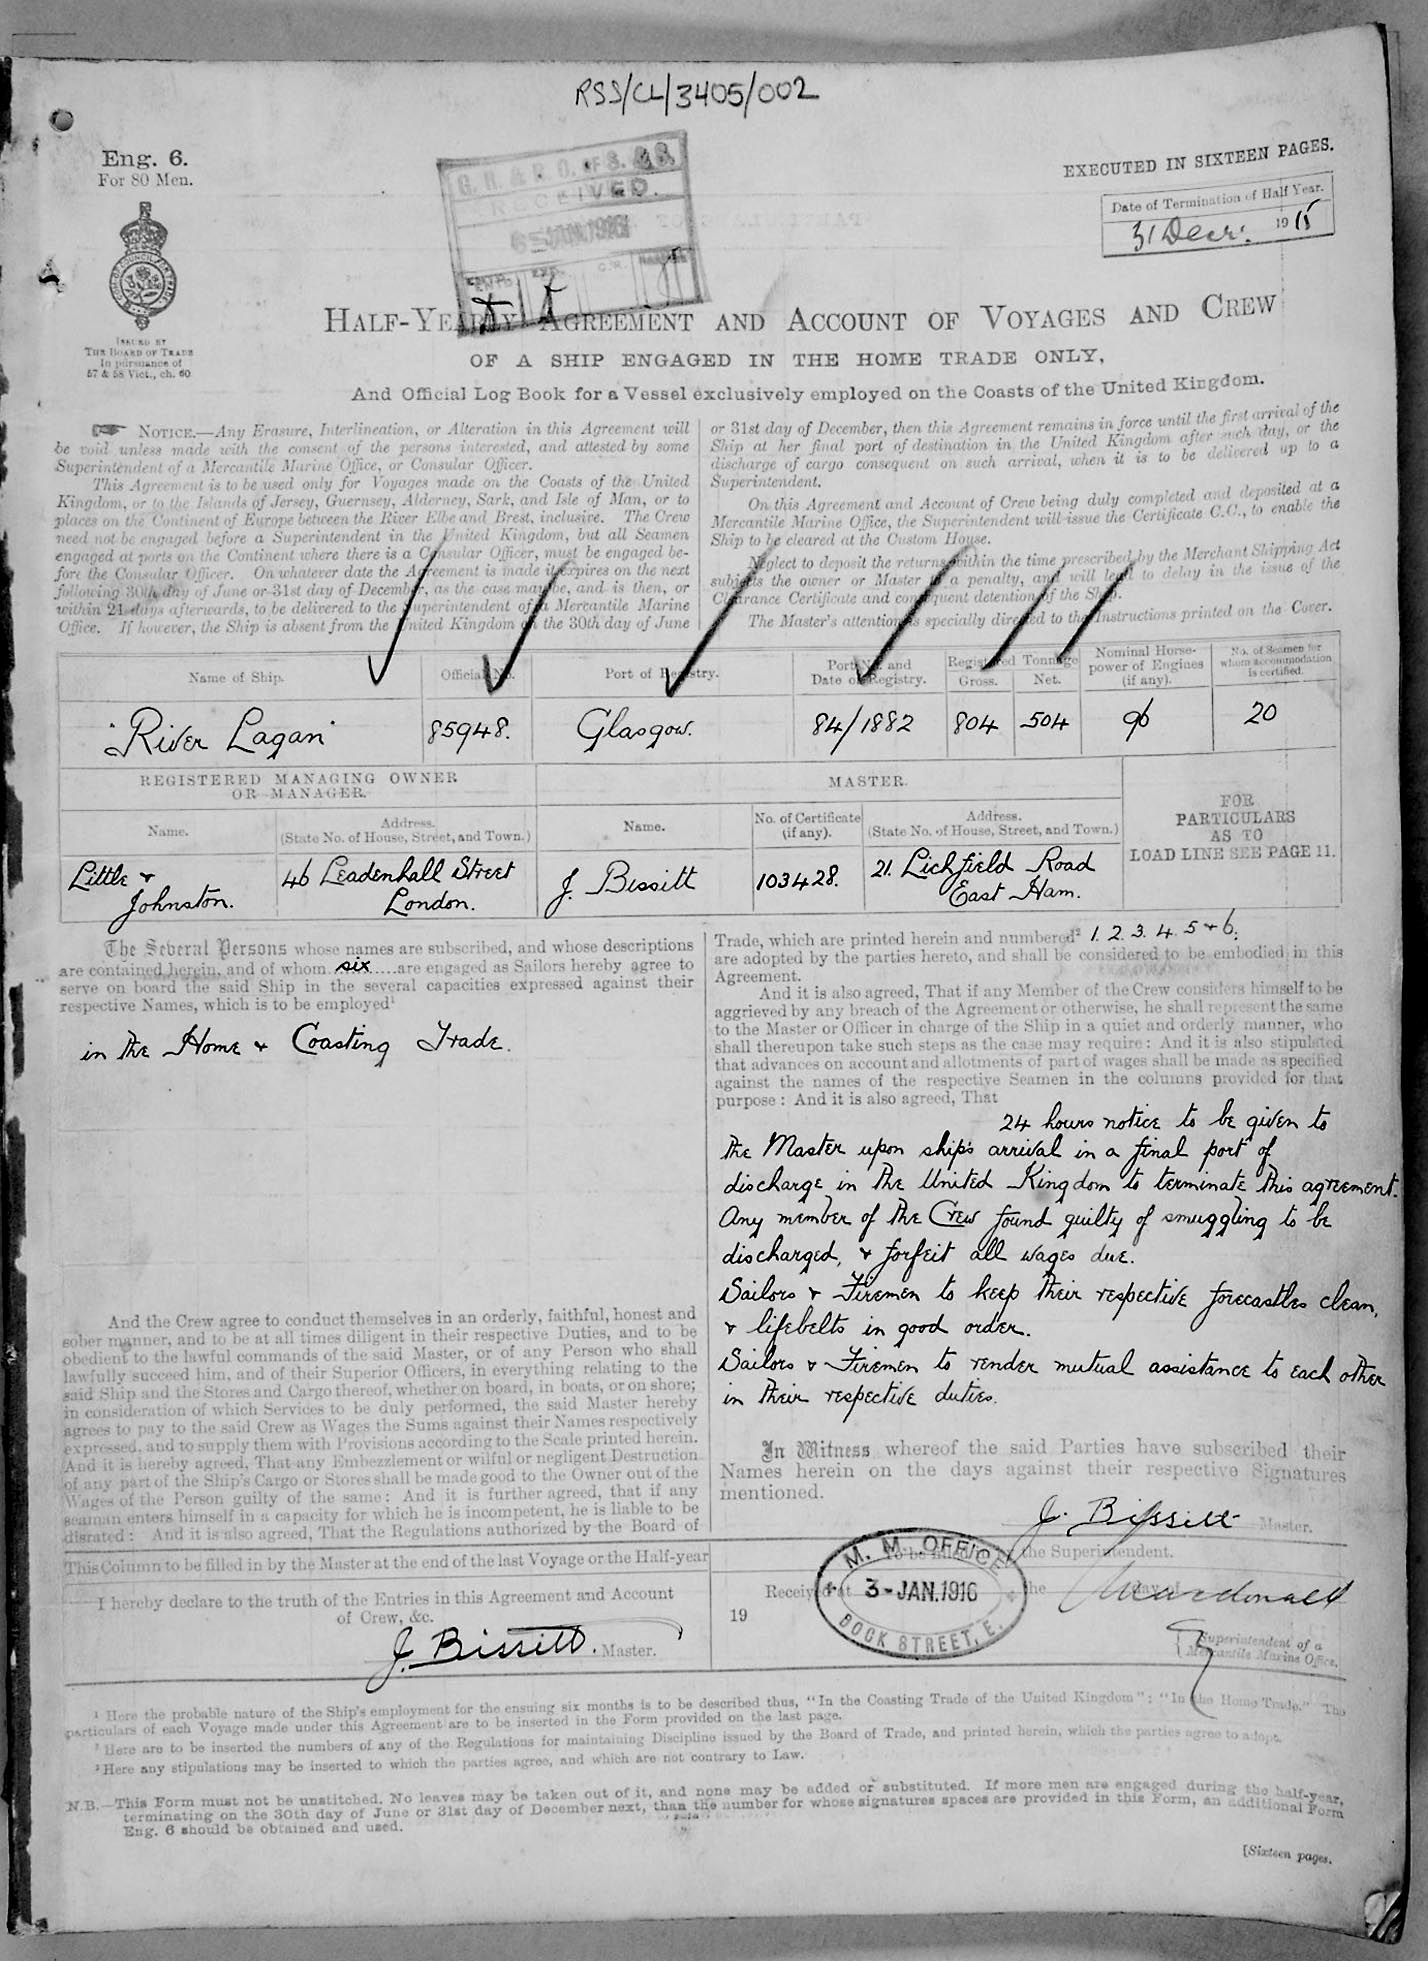 RSS/CL/3405/002
Eng. 6.
For 80 Men.
EXECUTED IN SIXTEEN PAGES.
Date of Termination of Half Year.
31 Decr. 1915
G. R. & R. O. OF S. & S.
RECEIVED.
JAN. 1916
ISSUED BY
THE BOARD OF TRADE
In pursuance of
57 & 58 Vict., ch. 60
HALF-YEARLY AGREEMENT AND ACCOUNT OF VOYAGES AND CREW
OF A SHIP ENGAGED IN THE HOME TRADE ONLY,
And Official Log Book for a Vessel exclusively employed on the Coasts of the United Kingdom.
NOTICE.—Any Erasure, Interlineation, or Alteration in this Agreement will
be void unless made with the consent of the persons interested, and attested by some
Superintendent of a Mercantile Marine Office, or Consular Officer.
This Agreement is to be used only for Voyages made on the Coasts of the United
Kingdom, or to the Islands of Jersey, Guernsey, Alderney, Sark, and Isle of Man, or to
places on the Continent of Europe between the River Elbe and Brest, inclusive. The Crew
need not be engaged before a Superintendent in the United Kingdom, but all Seamen
engaged at ports on the Continent where there is a Consular Officer, must be engaged be-
fore the Consular Officer. On whatever date the Agreement is made it expires on the next
following 30th day of June or 31st day of December, as the case may be, and is then, or
within 21 days afterwards, to be delivered to the Superintendent of a Mercantile Marine
Office. If however, the Ship is absent from the United Kingdom on the 30th day of June
or 31st day of December, then this Agreement remains in force until the first arrival of the
Ship at her final port of destination in the United Kingdom after such day, or the
discharge of cargo consequent on such arrival, when it is to be delivered up to a
Superintendent.
On this Agreement and Account of Crew being duly completed and deposited at a
Mercantile Marine Office, the Superintendent will issue the Certificate C.C., to enable the
Ship to be cleared at the Custom House.
Neglect to deposit the returns within the time prescribed by the Merchant Shipping Act
subjects the owner or Master to a penalty, and will lead to delay in the issue of the
Clearance Certificate and consequent detention of the Ship.
The Master's attention is specially directed to the Instructions printed on the Cover.
Name of Ship.
Official No.
Port of Registry.
Port No. and
Date of Registry.
Registered Tonnage
Gross. Net.
Nominal Horse-
power of Engines
(if any).
No. of Seamen for
whom accommodation
is certified.
"River Lagan" 85948. Glasgow. 84/1882 804 504 96 20
REGISTERED MANAGING OWNER
OR MANAGER.
MASTER.
Name.
Address.
(State No. of House, Street, and Town.)
Name.
No. of Certificate
(if any).
Address.
(State No. of House, Street, and Town.)
FOR
PARTICULARS
AS TO
LOAD LINE SEE PAGE 11.
Little &
Johnston.
46 Leadenhall Street
London.
J. Bissitt
103428.
21. Lichfield Road
East Ham.
The Several Persons whose names are subscribed, and whose descriptions
are contained herein, and of whom six are engaged as Sailors hereby agree to
serve on board the said Ship in the several capacities expressed against their
respective Names, which is to be employed¹
in the Home & Coasting Trade.
And the Crew agree to conduct themselves in an orderly, faithful, honest and
sober manner, and to be at all times diligent in their respective Duties, and to be
obedient to the lawful commands of the said Master, or of any Person who shall
lawfully succeed him, and of their Superior Officers, in everything relating to the
said Ship and the Stores and Cargo thereof, whether on board, in boats, or on shore;
in consideration of which Services to be duly performed, the said Master hereby
agrees to pay to the said Crew as Wages the Sums against their Names respectively
expressed, and to supply them with Provisions according to the Scale printed herein.
And it is hereby agreed, That any Embezzlement or wilful or negligent Destruction
of any part of the Ship's Cargo or Stores shall be made good to the Owner out of the
Wages of the Person guilty of the same: And it is further agreed, that if any
seaman enters himself in a capacity for which he is incompetent, he is liable to be
disrated: And it is also agreed, That the Regulations authorized by the Board of
Trade, which are printed herein and numbered² 1. 2. 3. 4. 5 & 6.
are adopted by the parties hereto, and shall be considered to be embodied in this
Agreement.
And it is also agreed, That if any Member of the Crew considers himself to be
aggrieved by any breach of the Agreement or otherwise, he shall represent the same
to the Master or Officer in charge of the Ship in a quiet and orderly manner, who
shall thereupon take such steps as the case may require: And it is also stipulated
that advances on account and allotments of part of wages shall be made as specified
against the names of the respective Seamen in the columns provided for that
purpose: And it is also agreed, That
24 hours notice to be given to
the Master upon ship's arrival in a final port of
discharge in the United Kingdom to terminate this agreement.
Any member of the Crew found guilty of smuggling to be
discharged, & forfeit all wages due.
Sailors & Firemen to keep their respective forecastles clean,
& lifebelts in good order.
Sailors & Firemen to render mutual assistance to each other
in their respective duties.
In Witness whereof the said Parties have subscribed their
Names herein on the days against their respective Signatures
mentioned.
J. Bissitt Master.
This Column to be filled in by the Master at the end of the last Voyage or the Half-year
I hereby declare to the truth of the Entries in this Agreement and Account
of Crew, &c.
J. Bissitt. Master.
To be filled in by the Superintendent.
Received at the day of
19
M. M. OFFICE
3-JAN.1916
DOCK STREET, E.
Macdonald
Superintendent of a
Mercantile Marine Office.
¹ Here the probable nature of the Ship's employment for the ensuing six months is to be described thus, "In the Coasting Trade of the United Kingdom"; "In the Home Trade." The
particulars of each Voyage made under this Agreement are to be inserted in the Form provided on the last page.
² Here are to be inserted the numbers of any of the Regulations for maintaining Discipline issued by the Board of Trade, and printed herein, which the parties agree to adopt.
³ Here any stipulations may be inserted to which the parties agree, and which are not contrary to Law.
N.B.—This Form must not be unstitched. No leaves may be taken out of it, and none may be added or substituted. If more men are engaged during the half-year,
terminating on the 30th day of June or 31st day of December next, than the number for whose signatures spaces are provided in this Form, an additional Form
Eng. 6 should be obtained and used.
[Sixteen pages.